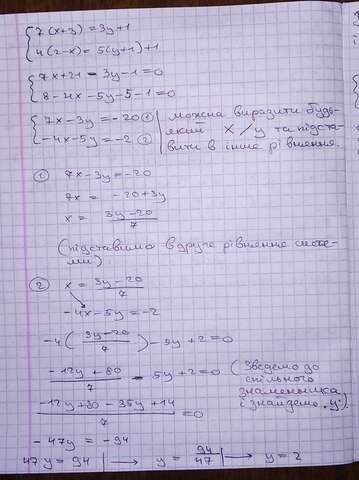 7(x+3)=3y+1
4(2-x)=5(y+1)+1
7x+21-3y-1=0
8-4x-5y-5-1=0
7x-3y=-20 ① | можна виразити будь-
-4x-5y=-2 ② | який x/y та підста-
вити в інше рівняння.
① 7x-3y=-20
7x = -20+3y
x = 3y-20/7
(підставимо в друге рівняння систе-
ми)
② x = 3y-20/7
-4x-5y=-2
-4(3y-20/7)-5y+2=0
-12y+80/7 - 5y+2=0 (Зведемо до
спільного
знаменника
і знайдемо "y")
-12y+80-35y+14/7 =0
-47y = -94
47y=94 |→ y = 94/47 |→ y=2